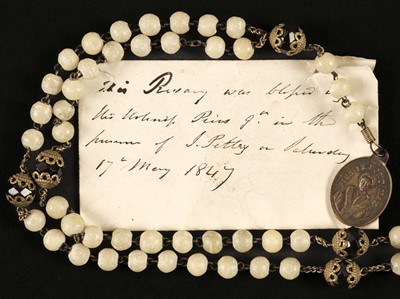 This Rosary was blessed by
His Holiness Pius 9th in the
presence of J. Pettry on Saturday
17th May 1847